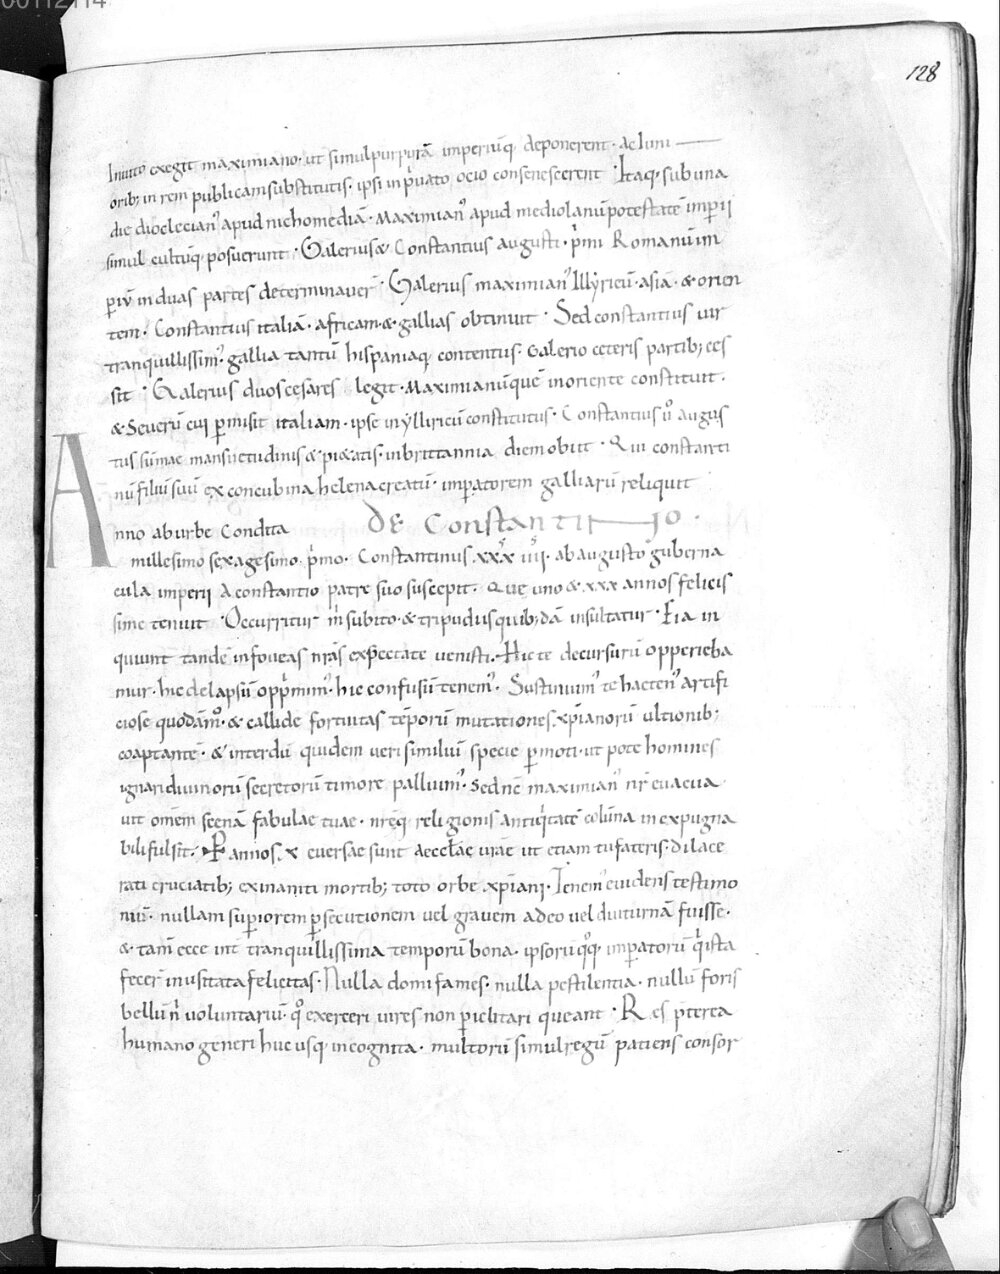 00112114
128
Inuito exegit maximiano· ut simul purpurā imperiūq; deponerent· ac iuni
orib; in rem publicam substitutis· ipsi in p̄uato ocio consenescerent· Itaq; sub una
die dioclecian᾿ apud nichomediā· Maximian᾿ apud mediolanū potestatē imp̄ii
simul cultūq; posuerunt· Galerius & Constantius augusti· p̄mi Romanū im
p̄iū in duas partes determinauer̄· Galerius maximian᾿ Illÿricū· asiā· & orien
tem· Constantius italiā· africam· & gallias obtinuit· Sed constantius uir
tranquillissim᾿ gallia tantū hispaniaq; contentus· Galerio ceteris partib; ces
sit· Galerius duos cesares legit· Maximianū quē in oriente constituit·
& Seuerū cui p̄misit italiam· ipse in ÿlliricū constitutus· Constantius ū augus
tus sūmae mansuetudinis & pietatis· in brittannia diem obiit· Qui constanti
nū filiū suū ex concubina helena creatū· imp̄atorem galliarū reliquit
Anno ab urbe Condita de Constantino·
millesimo sexagesimo p̄mo· Constantinus xxxiiii· ab augusto guberna
cula imperii A constantio patre suo suscepit· Que uno & xxx annos felicis
sime tenuit· Occurritur m̄ subito· & tripudiis quib;dā insultatur· Eia in
quiunt tandē in foueas n̄ras exspectate uenisti· Hic te decursurū opperieba
mur· hic delapsū opp̄mim᾿· hic confusū tenem᾿· Sustinuim᾿ te hacten᾿ artifi
ciose quodāmo & callide fortuitas tēporū mutationes xpianorū ultionib;
coaptantē· & interdū quidem ueri similiū specie p̄moti· ut pote homines
ignari diuinorū secretorū timore palluim᾿· Sed nc̄ maximian᾿ nr̄ euacua
uit om̄em scenā fabulae tuae· nr̄eq; religionis antiq̄tatē colūna inexpugna
bili fulsit· P annos· x euersae sunt aecc̄lae uræ ut etiam tu fateris· dilace
rati cruciatib; exinaniti mortib; toto orbe xpiani· Tenem᾿ euidens testimo
niū· nullam sup̄iorem p̄secutionem uel grauem adeo uel diuturnā fuisse·
& tam̄ ecce int̄ tranquillissima temporū bona· ipsorū qq; imp̄atorū q̄ ista
fecer̄ inusitata felicitas· Nulla domi fames· nulla pestilentia· nullū foris
bellū n̄ uoluntariū· q̊ exerceri uires non p̄iclitari queant· Res p̄terea
humano generi huc usq; incognita· multorū simul regū patiens consor